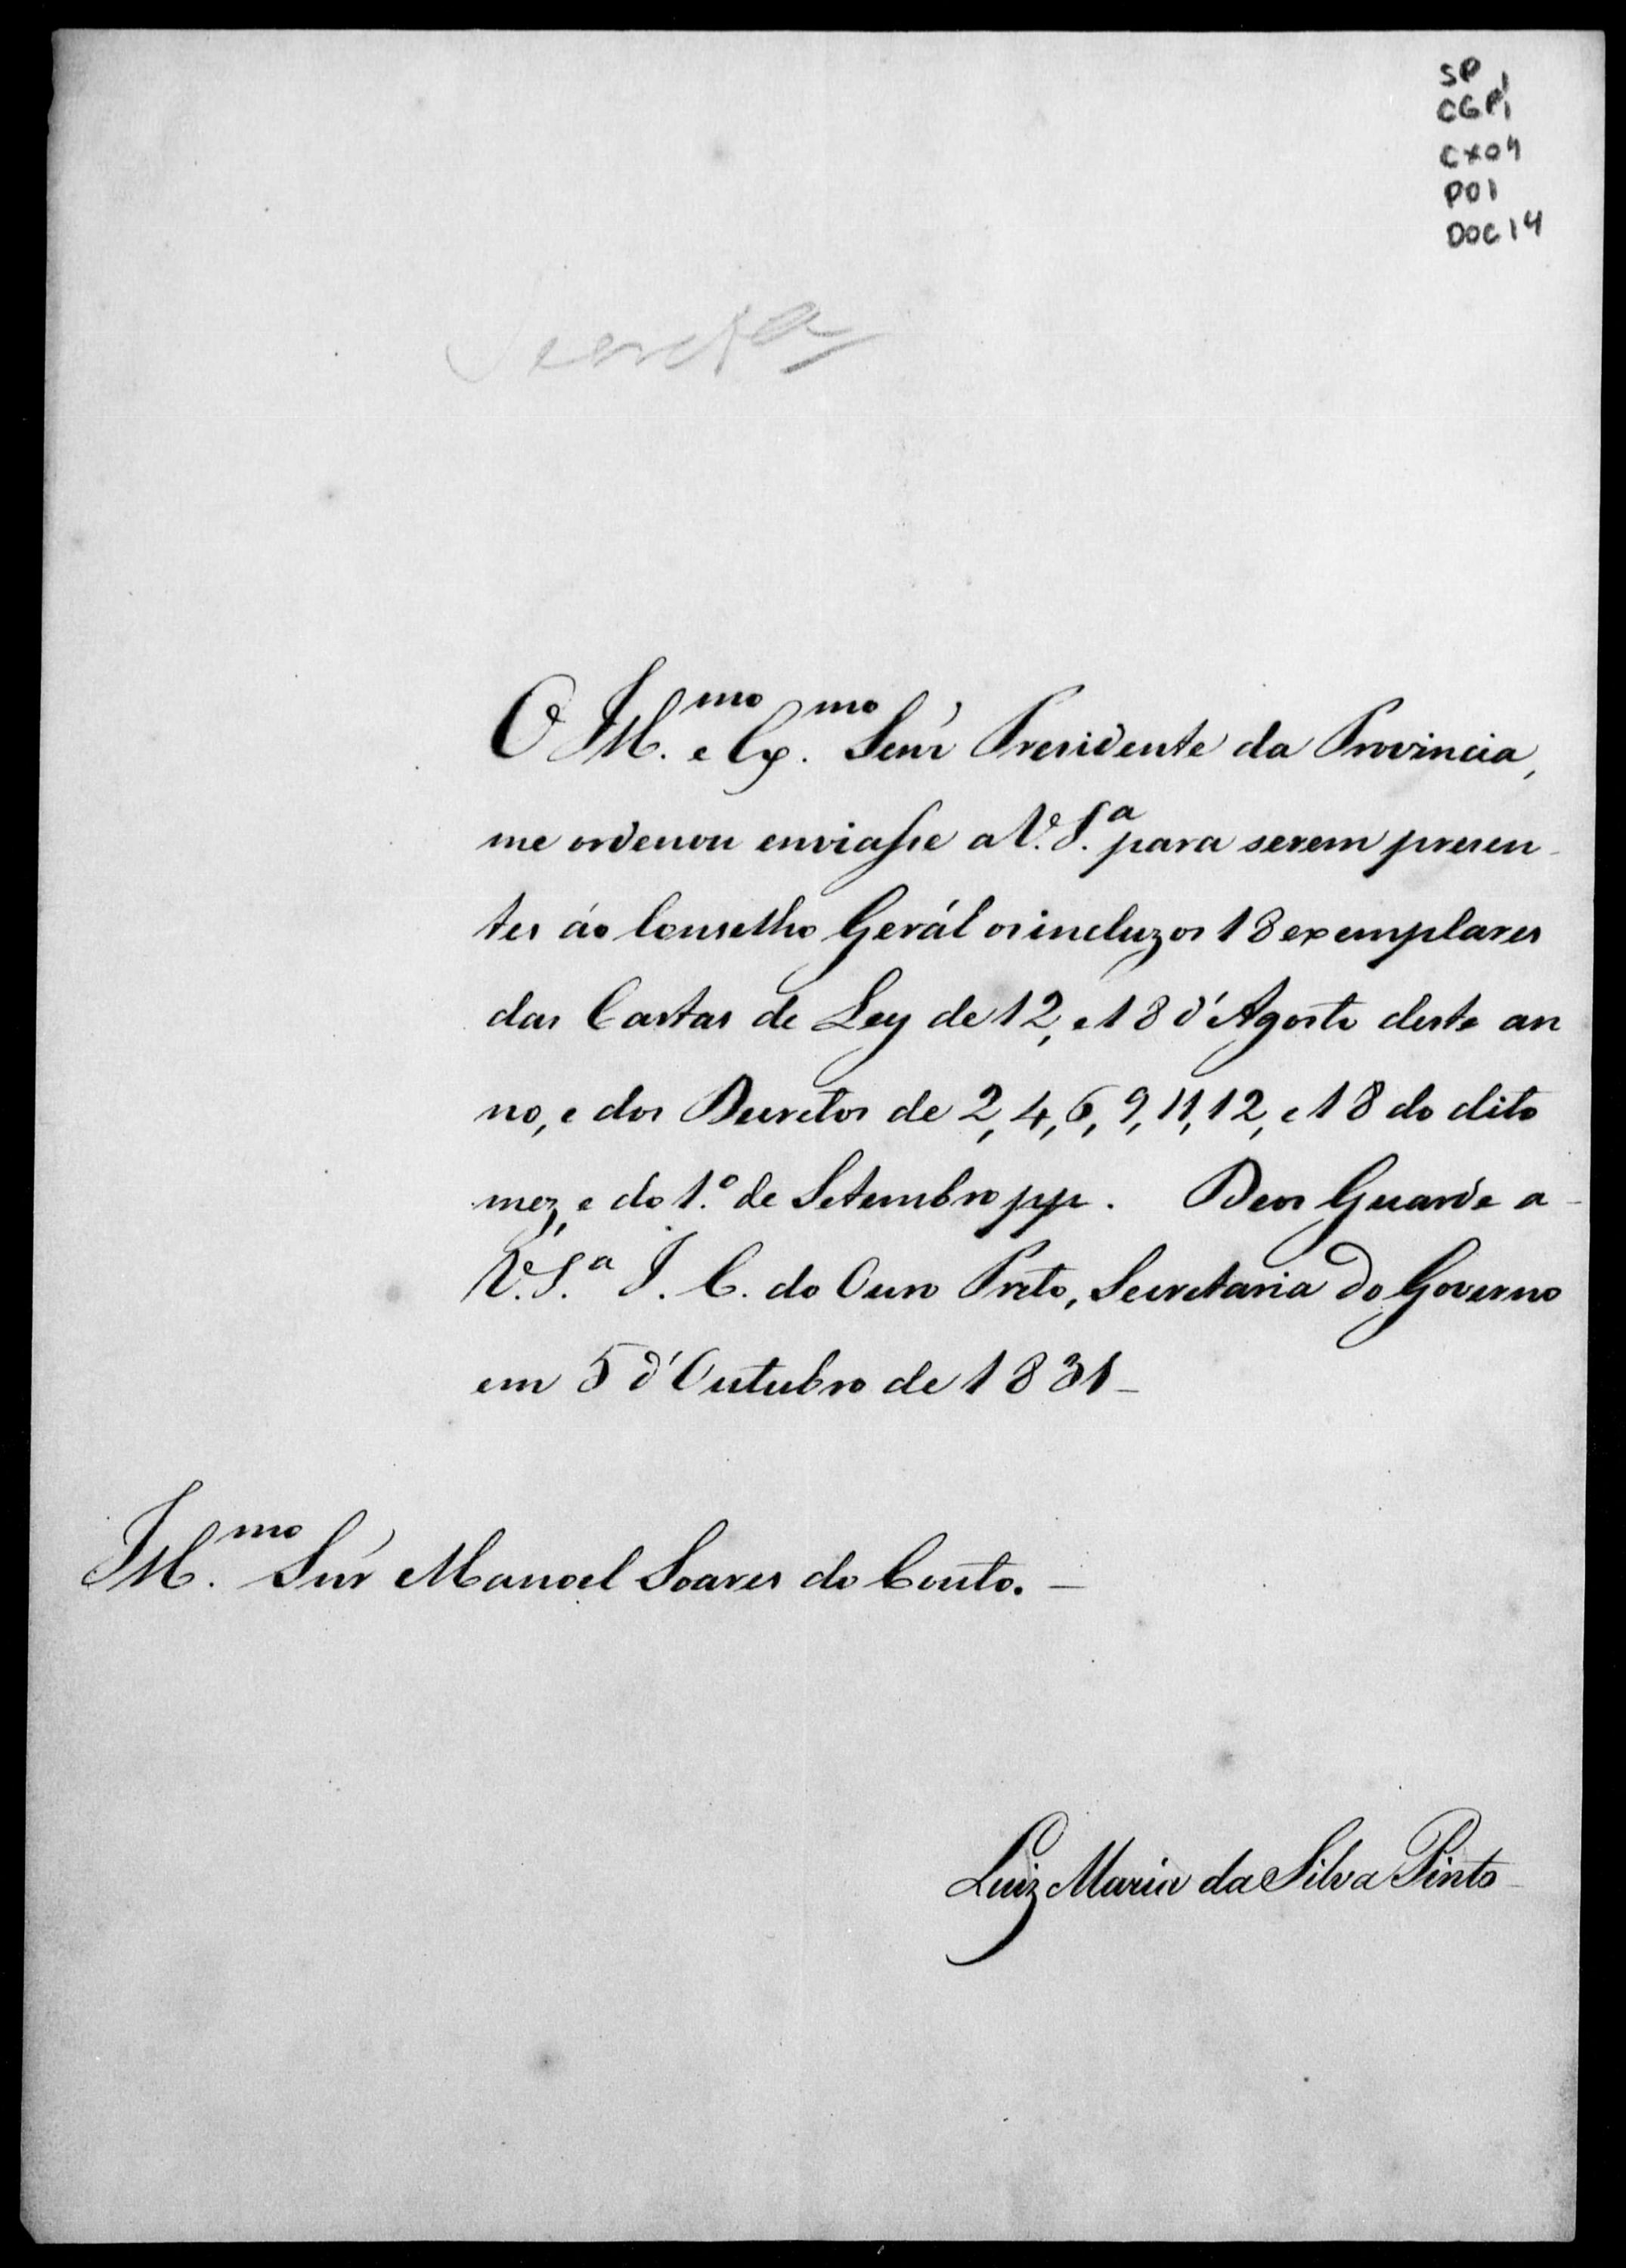 SP
CGP1
CX04
P01
DOC14
Secreta
O Ill.mo e Ex.mo Senr Presidente da Provincia,
me ordenou enviasse a V. S.a para serem presen-
tes áo Conselho Gerál os incluzos 18 exemplares
das Cartas de Ley de 12, e 18 d'Agosto deste an
no, e dos Decretos de 2, 4, 6, 9, 11, 12, e 18 do dito
mez, e do 1.º de Setembro pp. Deos Guarde a-
V. S.a I. C. do Ouro Preto, Secretaria do Governo
em 5 d'Outubro de 1831-
Ill.mo Snr Manoel Soares do Couto. -
Luiz Maria da Silva Pinto-